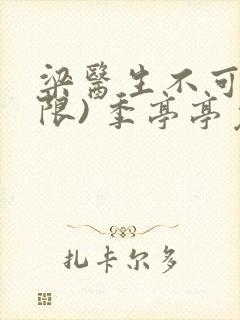 梁醫生不可
限)季亭亭
扎卡尔多